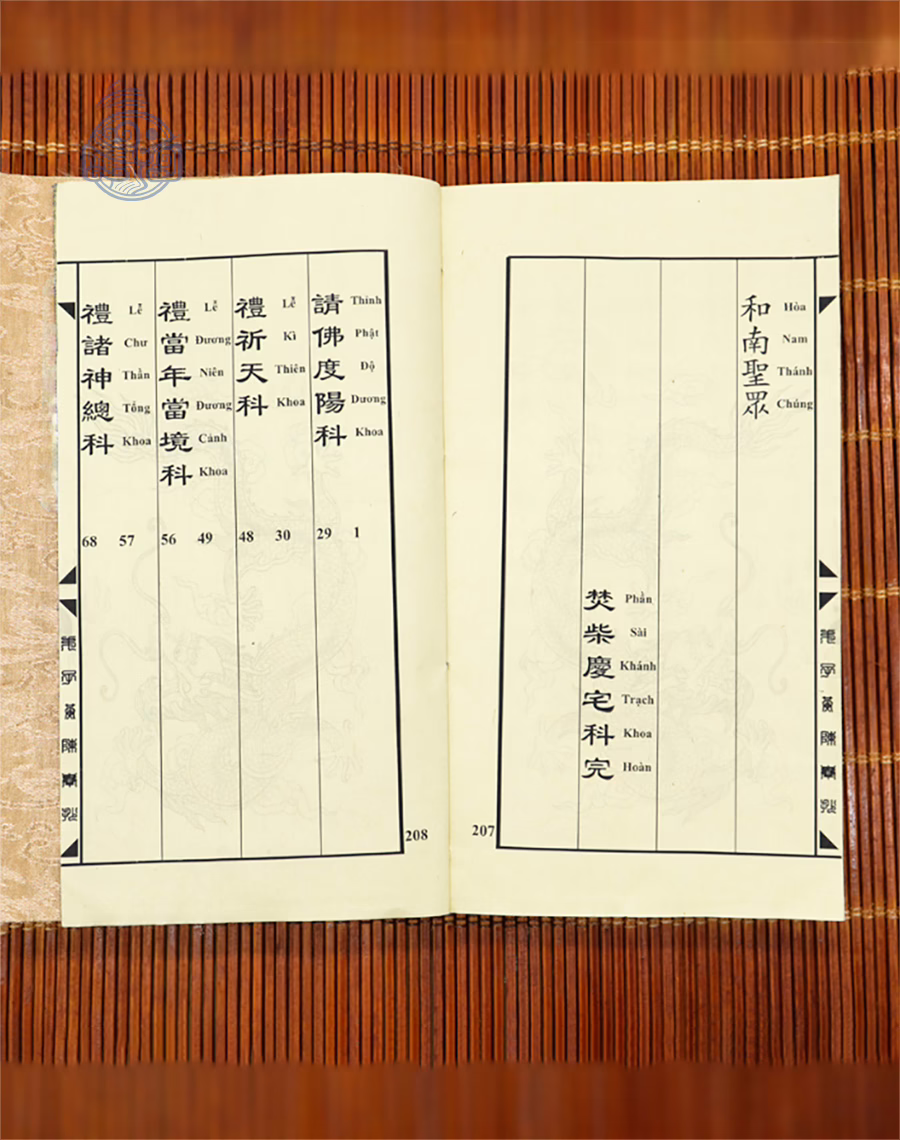 和南聖眾
Hòa Nam Thánh Chúng
焚柴慶宅科完
Phần Sài Khánh Trạch Khoa Hoàn
207
請佛度陽科
Thỉnh Phật Độ Dương Khoa
29 1
禮祈天科
Lễ Kì Thiên Khoa
48 30
禮當年當境科
Lễ Đương Niên Đương Cảnh Khoa
56 49
禮諸神總科
Lễ Chư Thần Tổng Khoa
68 57
208